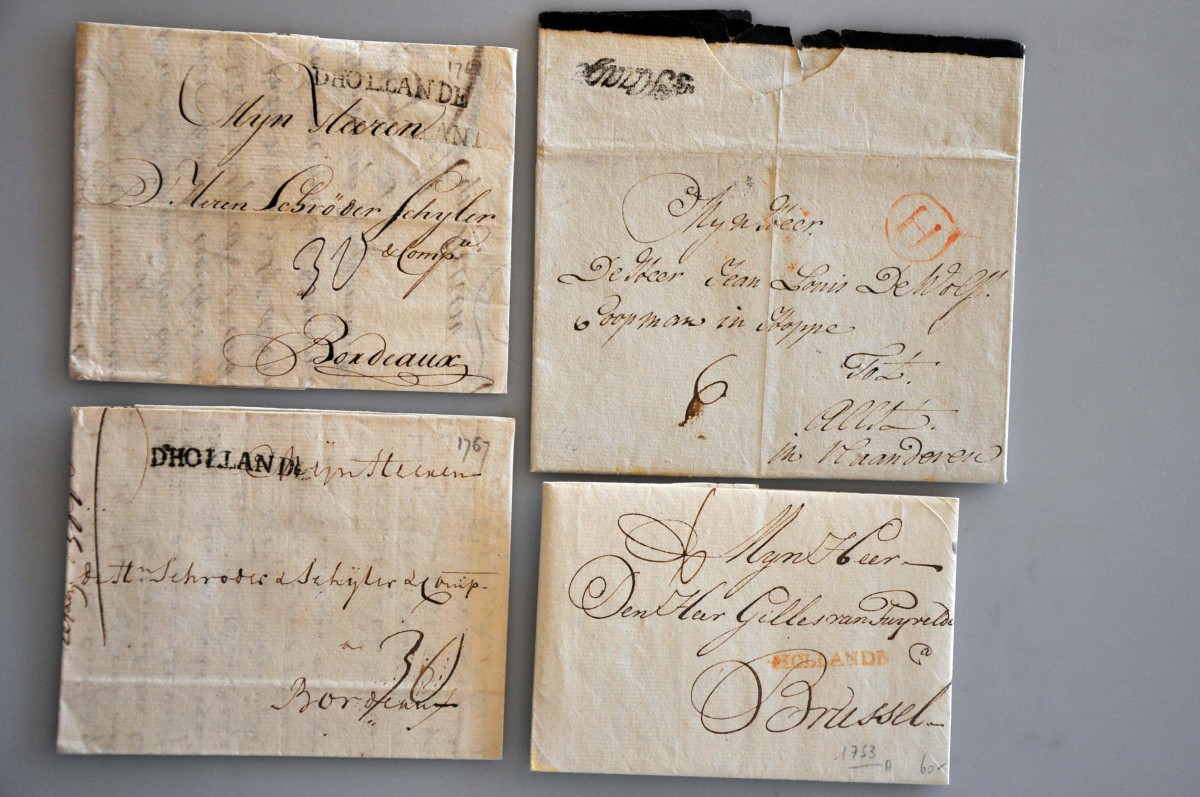 DHOLLANDE
Myn Heeren
D'Heren Schröder Schyler
& Comp.
30
Bordeaux
H
Myn Heer
De Heer Jean Louis De Wolf.
Coopman in Hoppe
6
Tot.
Allst.
in Vlaanderen
1767
DHOLLANDE
Mÿn Heeren
de Hn Schroder & Schÿler & Comp
a
36
Bordeaux
Myn Heer
Den Heer Gilles van Puyvelde
HOLLANDE
a
Brussel
1753
60